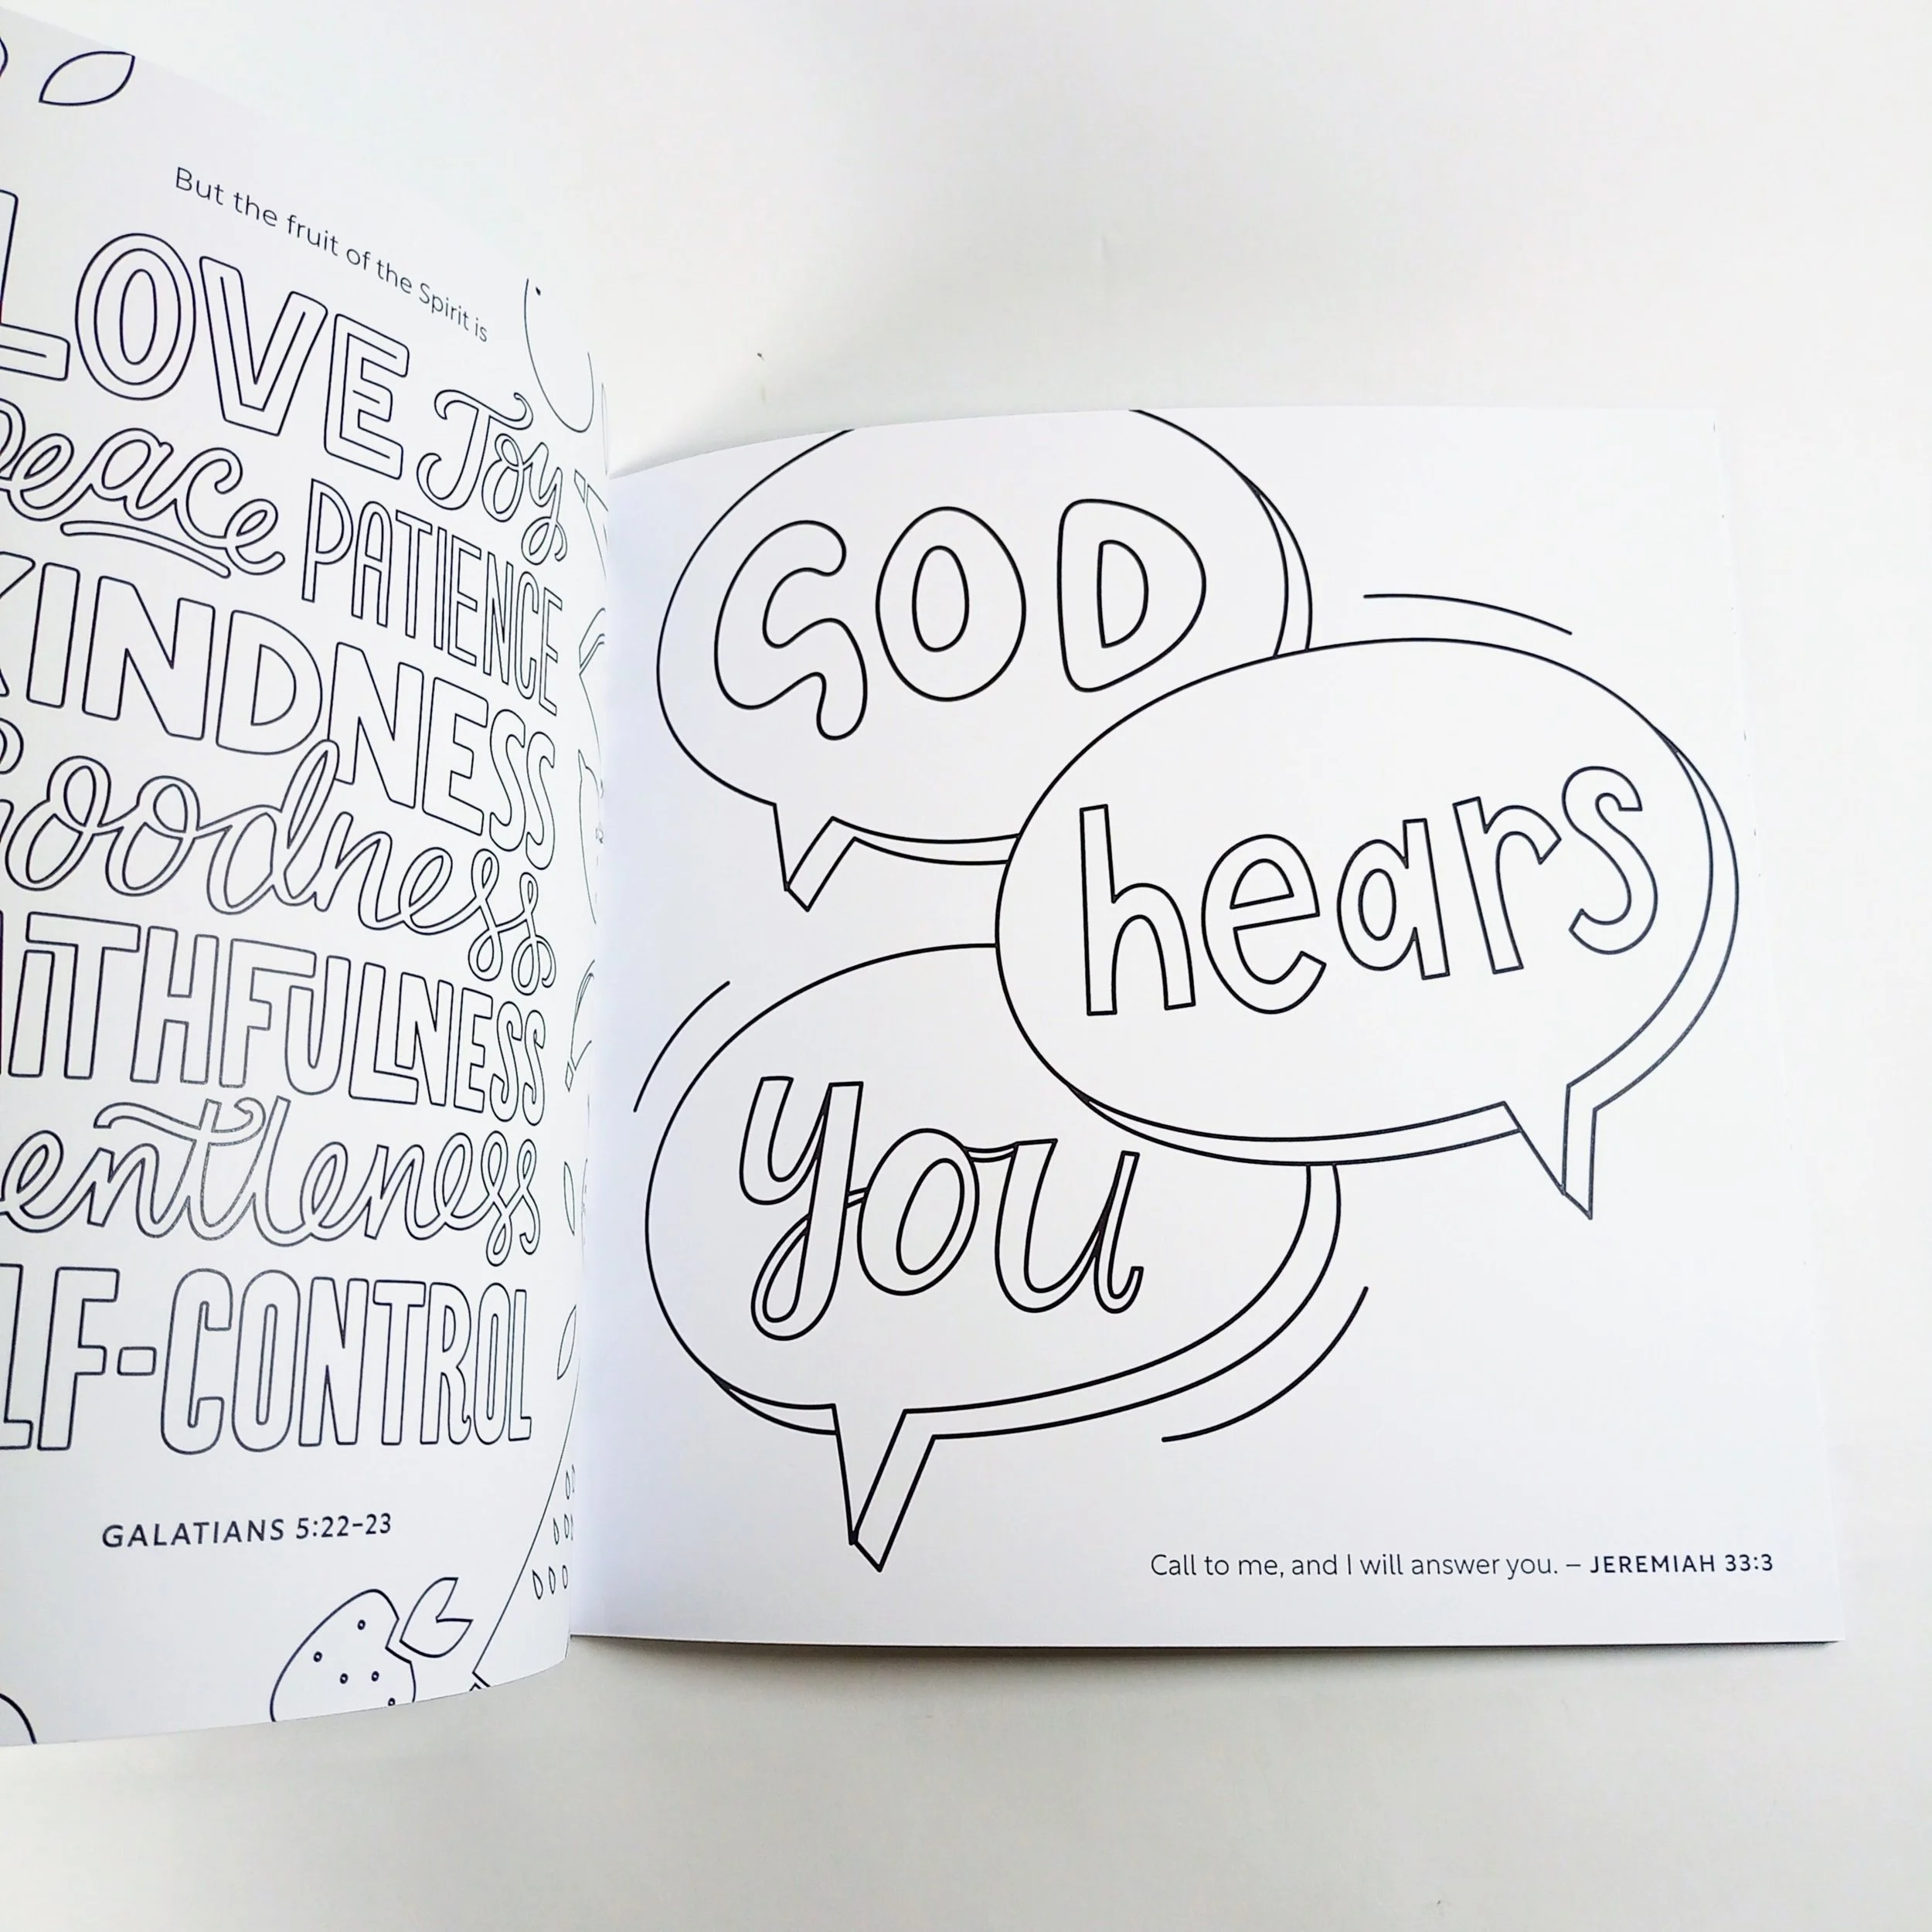 But the fruit of the Spirit is
LOVE Joy
Peace PATIENCE
KINDNESS
Goodness
AITHFULNESS
entleness
LF-CONTROL
GALATIANS 5:22-23
GOD
hears
you
Call to me, and I will answer you. – JEREMIAH 33:3